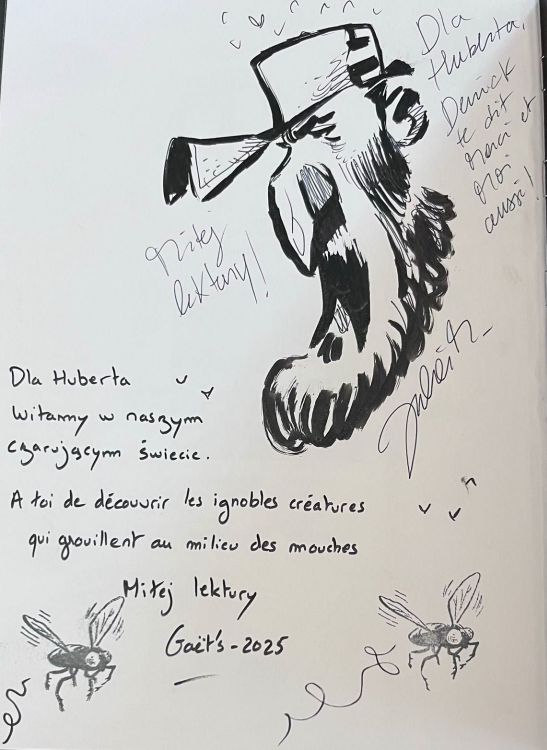 Dla
Huberta,
Derrick
te dit
Merci et
Moi
aussi!
Miłej
lektury!
Dla Huberta
Witamy w naszym
czarującym świecie.
A toi de découvrir les ignobles créatures
qui grouillent au milieu des mouches
Miłej lektury
Gaët's - 2025